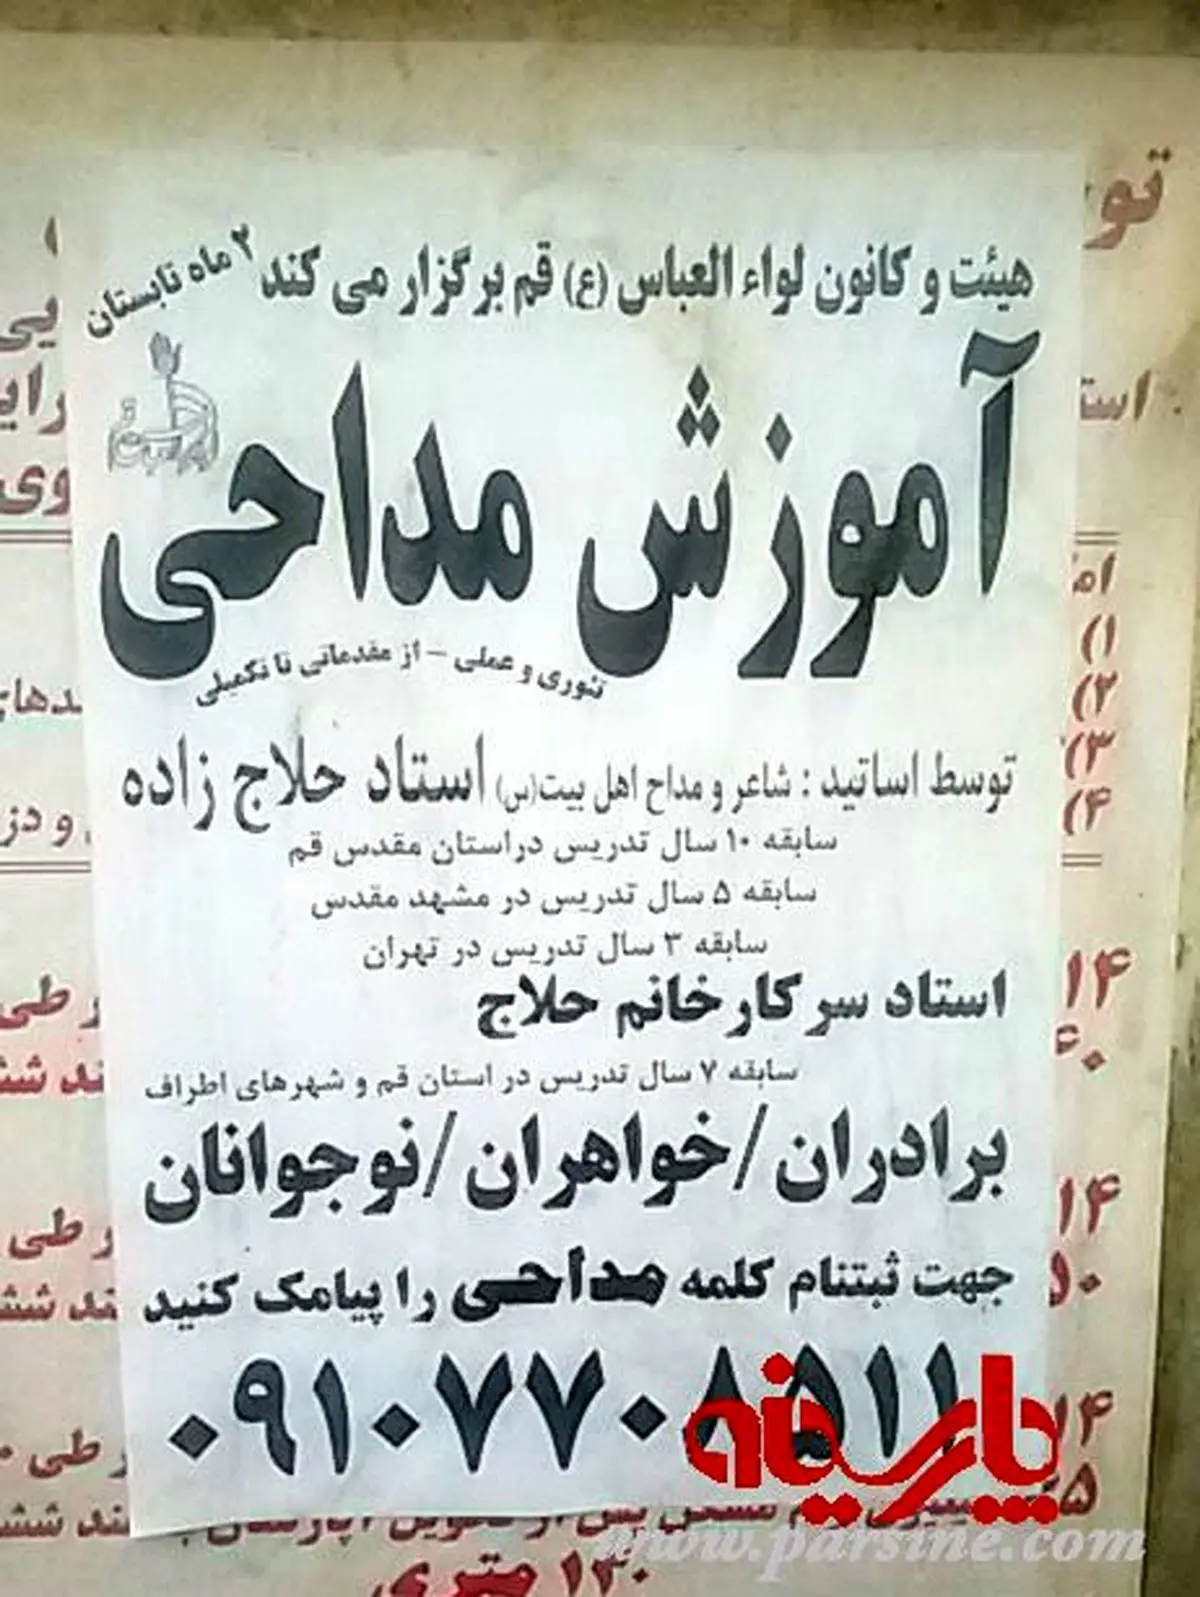 هیئت و کانون لواء العباس (ع) قم برگزار می کند
۲ ماه تابستان
آموزش مداحی
تئوری و عملی - از مقدماتی تا تکمیلی
توسط اساتید : شاعر و مداح اهل بیت(س) استاد حلاج زاده
سابقه ۱۰ سال تدریس دراستان مقدس قم
سابقه ۵ سال تدریس در مشهد مقدس
سابقه ۳ سال تدریس در تهران
استاد سرکارخانم حلاج
سابقه ۷ سال تدریس در استان قم و شهرهای اطراف
برادران/خواهران/نوجوانان
جهت ثبتنام کلمه مداحی را پیامک کنید
۰۹۱۰۷۷۰۸۵۱۱
پارسینه
www.parsine.com
۱۳۰ متری